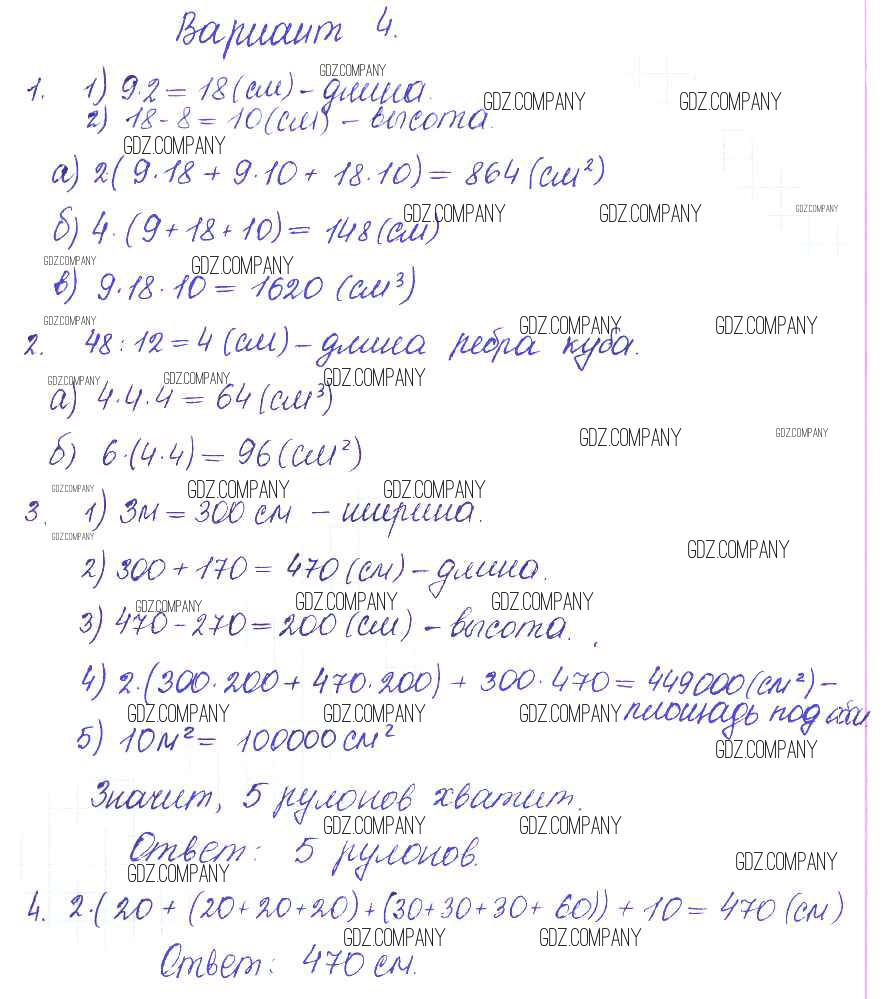 Вариант 4.
GDZ.COMPANY
1. 1) 9·2 = 18 (см) – длина.
GDZ.COMPANY GDZ.COMPANY
2) 18 - 8 = 10 (см) – высота.
GDZ.COMPANY
а) 2(9·18 + 9·10 + 18·10) = 864 (см²)
GDZ.COMPANY GDZ.COMPANY GDZ.COMPANY
б) 4·(9 + 18 + 10) = 148 (см)
GDZ.COMPANY GDZ.COMPANY
в) 9·18·10 = 1620 (см³)
GDZ.COMPANY GDZ.COMPANY GDZ.COMPANY
2. 48 : 12 = 4 (см) – длина ребра куба.
GDZ.COMPANY GDZ.COMPANY GDZ.COMPANY
а) 4·4·4 = 64 (см³)
GDZ.COMPANY GDZ.COMPANY
б) 6·(4·4) = 96 (см²)
GDZ.COMPANY GDZ.COMPANY GDZ.COMPANY
3. 1) 3м = 300 см – ширина.
GDZ.COMPANY GDZ.COMPANY
2) 300 + 170 = 470 (см) – длина.
GDZ.COMPANY GDZ.COMPANY GDZ.COMPANY
3) 470 - 270 = 200 (см) – высота.
4) 2·(300·200 + 470·200) + 300·470 = 449000 (см²) –
GDZ.COMPANY GDZ.COMPANY GDZ.COMPANY площадь под
5) 10м² = 100000 см²
GDZ.COMPANY
Значит, 5 рулонов хватит.
GDZ.COMPANY GDZ.COMPANY
Ответ: 5 рулонов.
GDZ.COMPANY GDZ.COMPANY
4. 2·(20 + (20+20+20) + (30+30+30+60)) + 10 = 470 (см)
GDZ.COMPANY GDZ.COMPANY
Ответ: 470 см.